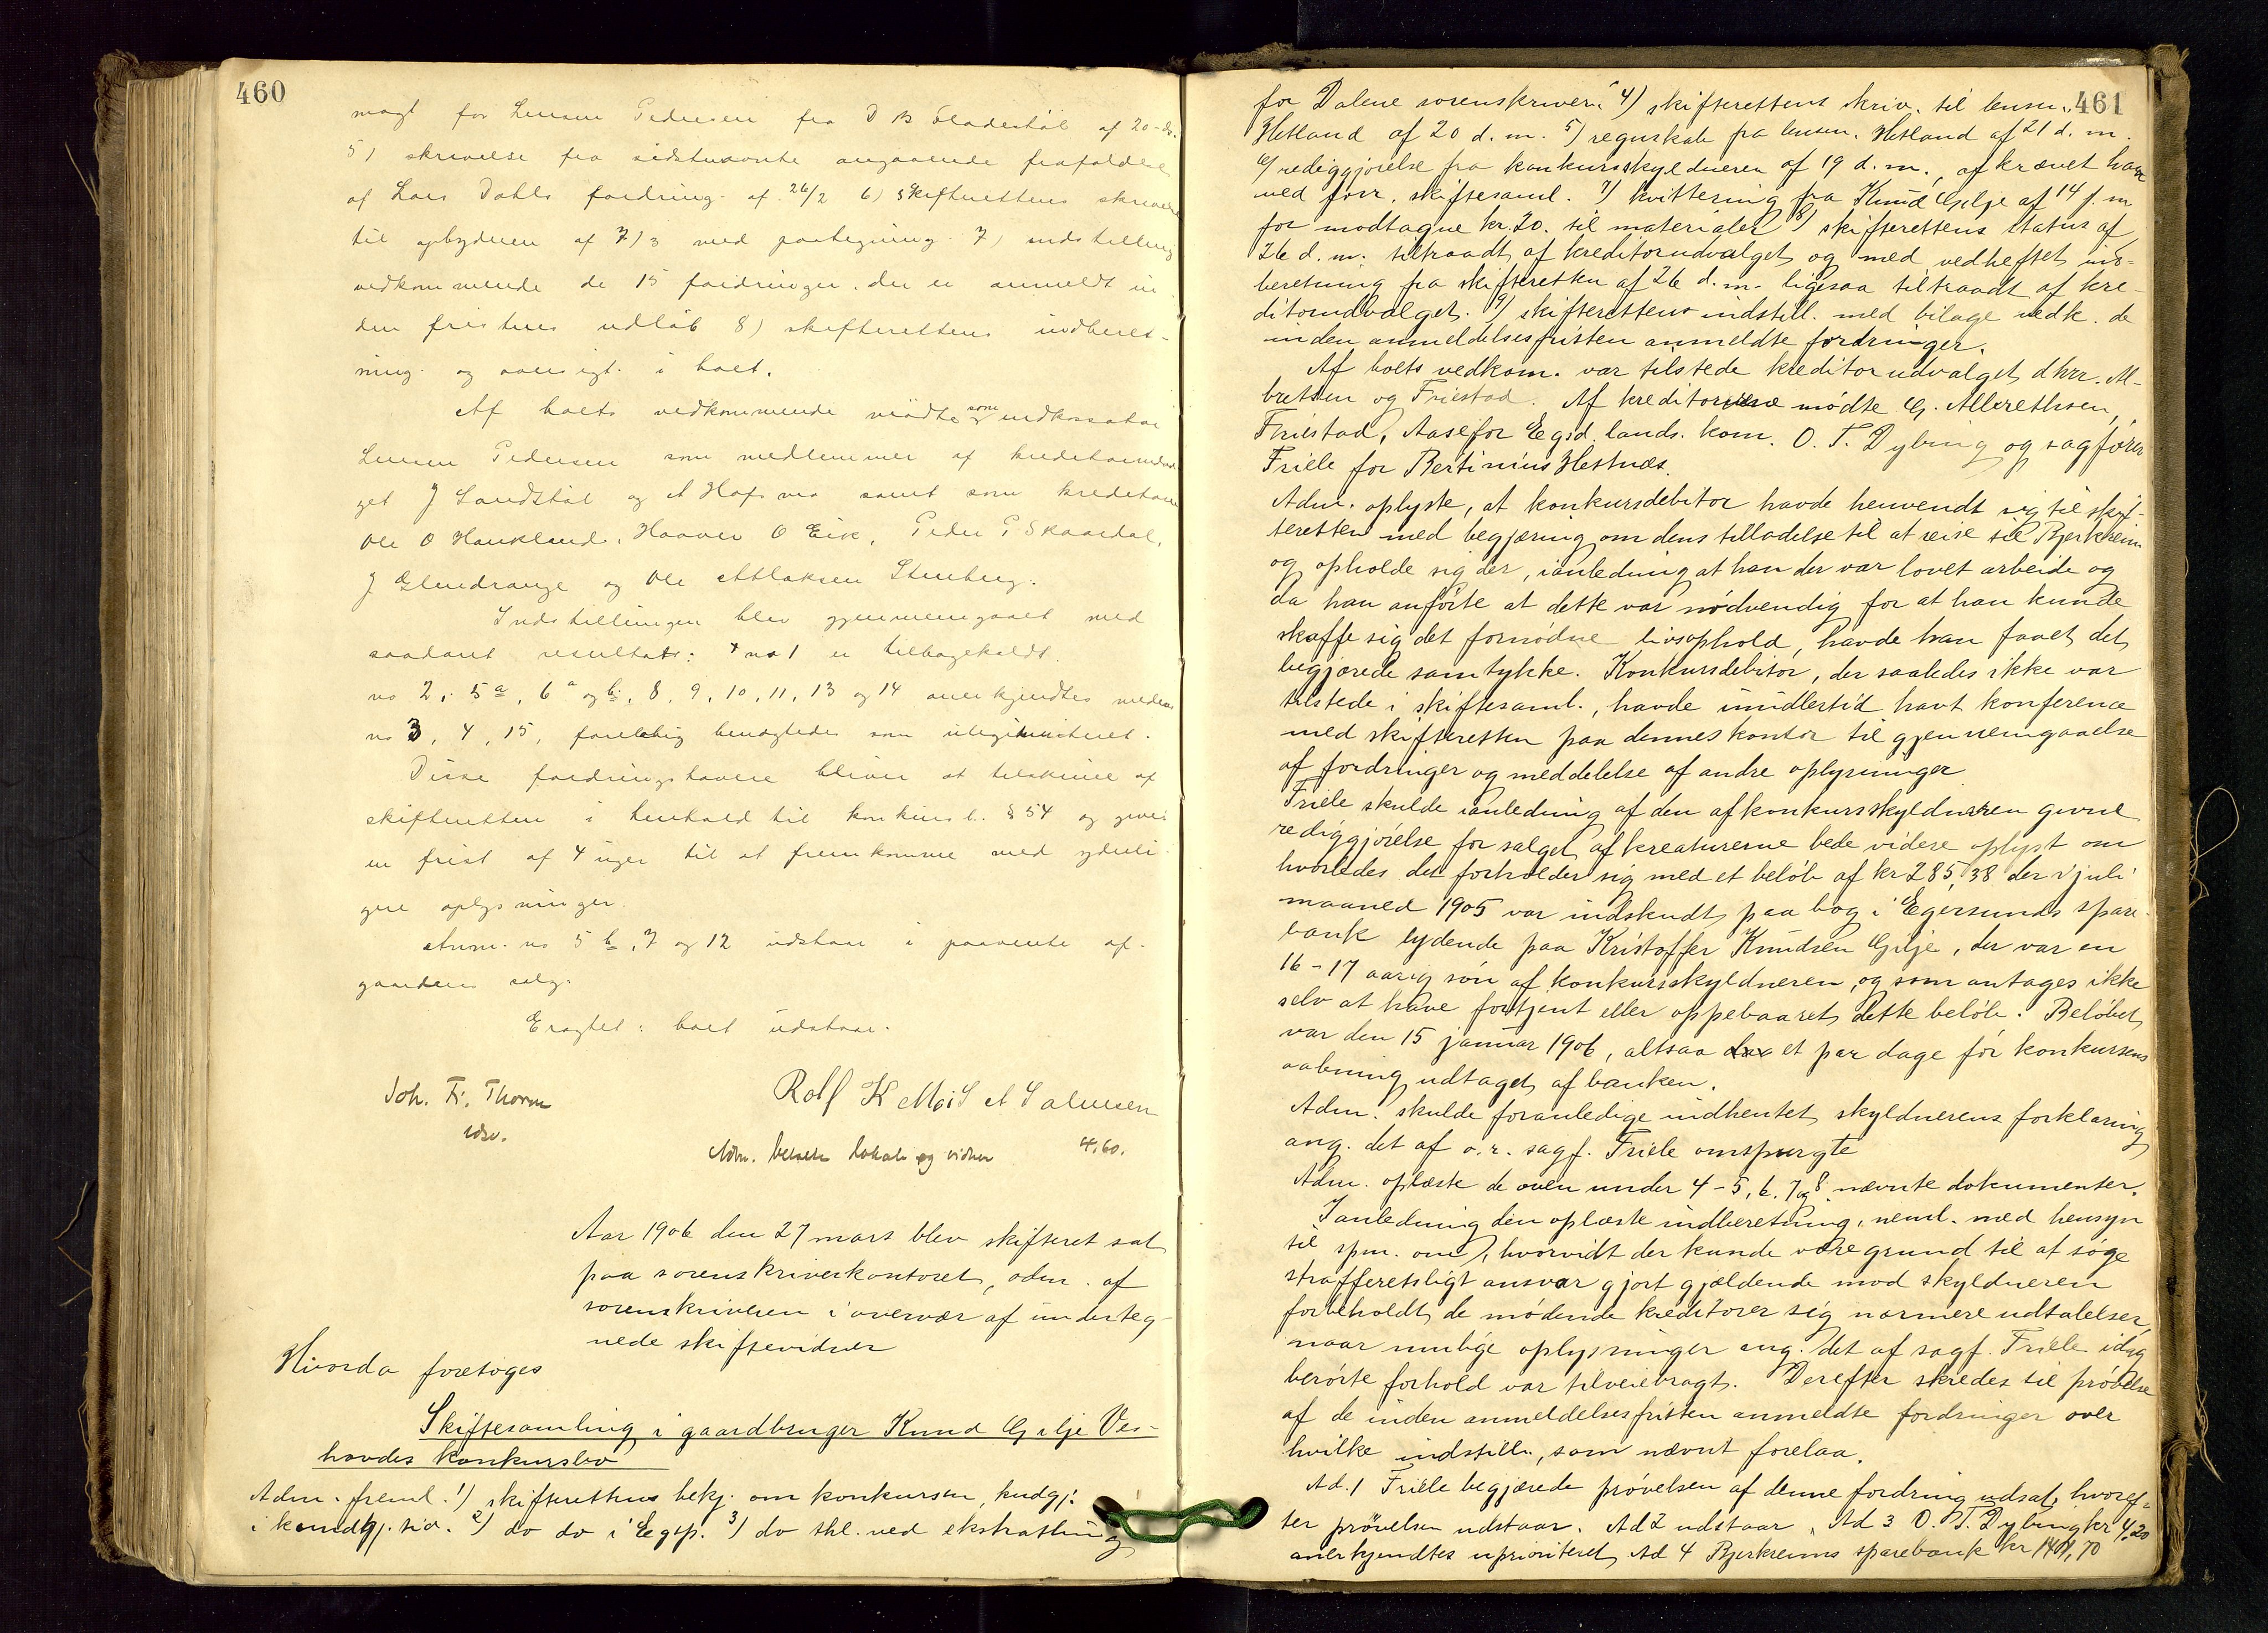 460
magt for Lensm Pedersen fra D B Fladestöl af 20-ds.
5) skrivelse fra sidstnævnte angaaende frafaldelse
af Lars Dahls fordring. af 26/2 6) skifterettens skrivelse
til opbyderen af 7/3 med paategning. 7) indstilling
vedkommende de 15 fordringer. der er anmeldt in
den fristens udløb 8) skifterettens indberet-
ning. og oversigt. i boet.
Af boets vedkommende mødte som indkassator
Lensm Pedersen som medlemmer af kreditorudval
get J Landstöl og A Hofsmo samt som kreditorer
Ole O Haukland, Haaver O Eik, Peder P Skaardal,
J Glendrange og Ole Atlaksen Stenberg.
Indstillingen blev gjennemgaaet med
saadant resultat: no 1 er tilbagekaldt.
no 2, 5a, 6a og b, 8, 9, 10, 11, 13 og 14 anerkjendtes medens
no 3, 4, 15, foreløbig benægtedes som ulegitimeret.
Disse fordringshavere bliver at tilskrive af
skifteretten i henhold til konkursl. § 54 og gives
en frist af 4 uger til at fremkomme med yderli-
gere oplysninger.
Anm. no 5 b, 7 og 12 udstaar i paavente af-
gaardens salg.
Eragtet: boet udstaar.
Joh. Fr. Thorne
Rolf K Moi S A Salmesen
Adm. betalte lokale og vidner 4,60.
Aar 1906 den 27 mars blev skifteret sat
paa sorenskriverkontoret, adm. af
sorenskriveren i overvær af underteg-
nede skiftevidner
Hvorda foretoges
Skiftesamling i gaardbruger Knud Gilje Ves-
hovdes konkursbo
Adm. freml. 1) skifterettens bekj. om konkursen, kudgj.
i kundgj. tid. 2) do do i Egsp. 3) do thl. ved ekstrathing
461
for Dalene sorenskriveri 4) skifterettens skriv. til lensm.
Hetland af 20 d. m. 5) regnskab fra lensm. Hetland af 21 d. m.
6) rediggjørelse fra konkursskyldneren af 19 d. m., afkrævet ham
ved forr. skiftesaml. 7) kvittering fra Knud Gilje af 14 f. m
for modtagne kr. 20. til materialer 8) skifterettens status af
26 d. m. tiltraadt af kreditorudvalget og med vedheftet ind-
beretning fra skifteretten af 26 d. m. ligesaa tiltraadt af kre-
ditorudvalget. 9) skifterettens indstill. med bilage vedk. de
inden anmeldelsesfristen anmeldte fordringer.
Af boets vedkom. var tilstede kreditorudvalget dhrr. Al-
bretsen og Friestad. Af kreditorerne mødte G. Albrethsen,
Friestad, Aase for Egsd. lands. kom. O. T. Dybing og sagfører
Friele for Bertinius Hestnæs.
Adm. oplyste, at konkursdebitor havde henvendt sig til skif-
teretten med begjæring om dens tilladelse til at reise til Bjerkreim
og opholde sig der, ianledning at han der var lovet arbeide og
da han anførte at dette var nødvendig for at han kunde
skaffe sig det fornødne livsophold, havde han faaet det
begjærede samtykke. Konkursdebitor, der saaledes ikke var
tilstede i skiftesaml., havde imidlertid havt konference
med skifteretten paa dennes kontor til gjennemgaaelse
af fordringer og meddelelse af andre oplysninger
Friele skulde ianledning af den af konkursskyldneren givne
rediggjørelse for salget af kreaturerne bede videre oplyst om
hvorledes det forholder sig med et beløb af kr 285,38 der i juli
maaned 1905 var indskudt paa bog i Egersunds spare-
bank lydende paa Kristoffer Knudsen Gilje, der var en
16-17 aarig søn af konkursskyldneren, og som antages ikke
selv at have fortjent eller oppebaaret dette beløb. Beløbet
var den 15 januar 1906, altsaa et par dage før konkursens
aabning udtaget af banken.
Adm. skulde foranledige indhentet skyldnerens forklaring
ang. det af o. r. sagf. Friele omspurgte
Adm. oplæste de oven under 4-5, 6, 7 og 8 nævnte dokumenter.
Ianledning den oplæste indberetning, neml. med hensyn
til spm. om, hvorvidt der kunde være grund til at søge
strafferetsligt ansvar gjort gjældende mod skyldneren
forbeholdt de mødende kreditorer sig nærmere udtalelser,
naar mulige oplysninger ang. det af sagf. Friele idag
berørte forhold var tilveiebragt. Derefter skredes til prøvelse
af de inden anmeldelsesfristen anmeldte fordringer over
hvilke indstill., som nævnt forelaa.
Ad. 1 Friele begjærede prøvelsen af denne fordring udsat, hvoref-
ter prøvelsen udstaar. Ad 2 udstaar. Ad 3 O. T. Dybing kr 4,20
anerkjendtes uprioriteret Ad 4 Bjerkreims sparebank kr 1401,70